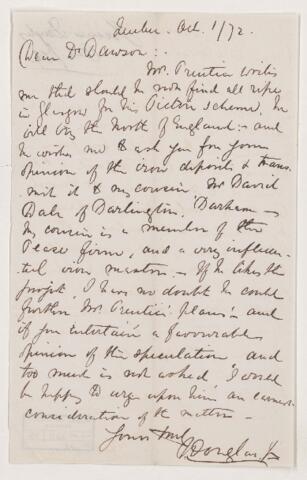 Quebec. Oct. 1/72.
Dear Dr Dawson:-
Mr. Prentice writes
me that should he not find all ripe
in Glasgow for his Pictou scheme, he
will try the North of England:- and
he wishes me to ask you for your
opinion of the iron deposits & trans-
mit it to my cousin, Mr David
Dale of Darlington, Durham -
My cousin is a member of the
Pease firm, and a very influen-
tial iron master. - If he likes the
project, I have no doubt he could
further Mr. Prentice's plans:- and
if you entertain a favourable
opinion of the speculation and
too much is not asked, I would
be happy to urge upon him an earnest
consideration of the matter -
Yours truly
J Douglas Jr